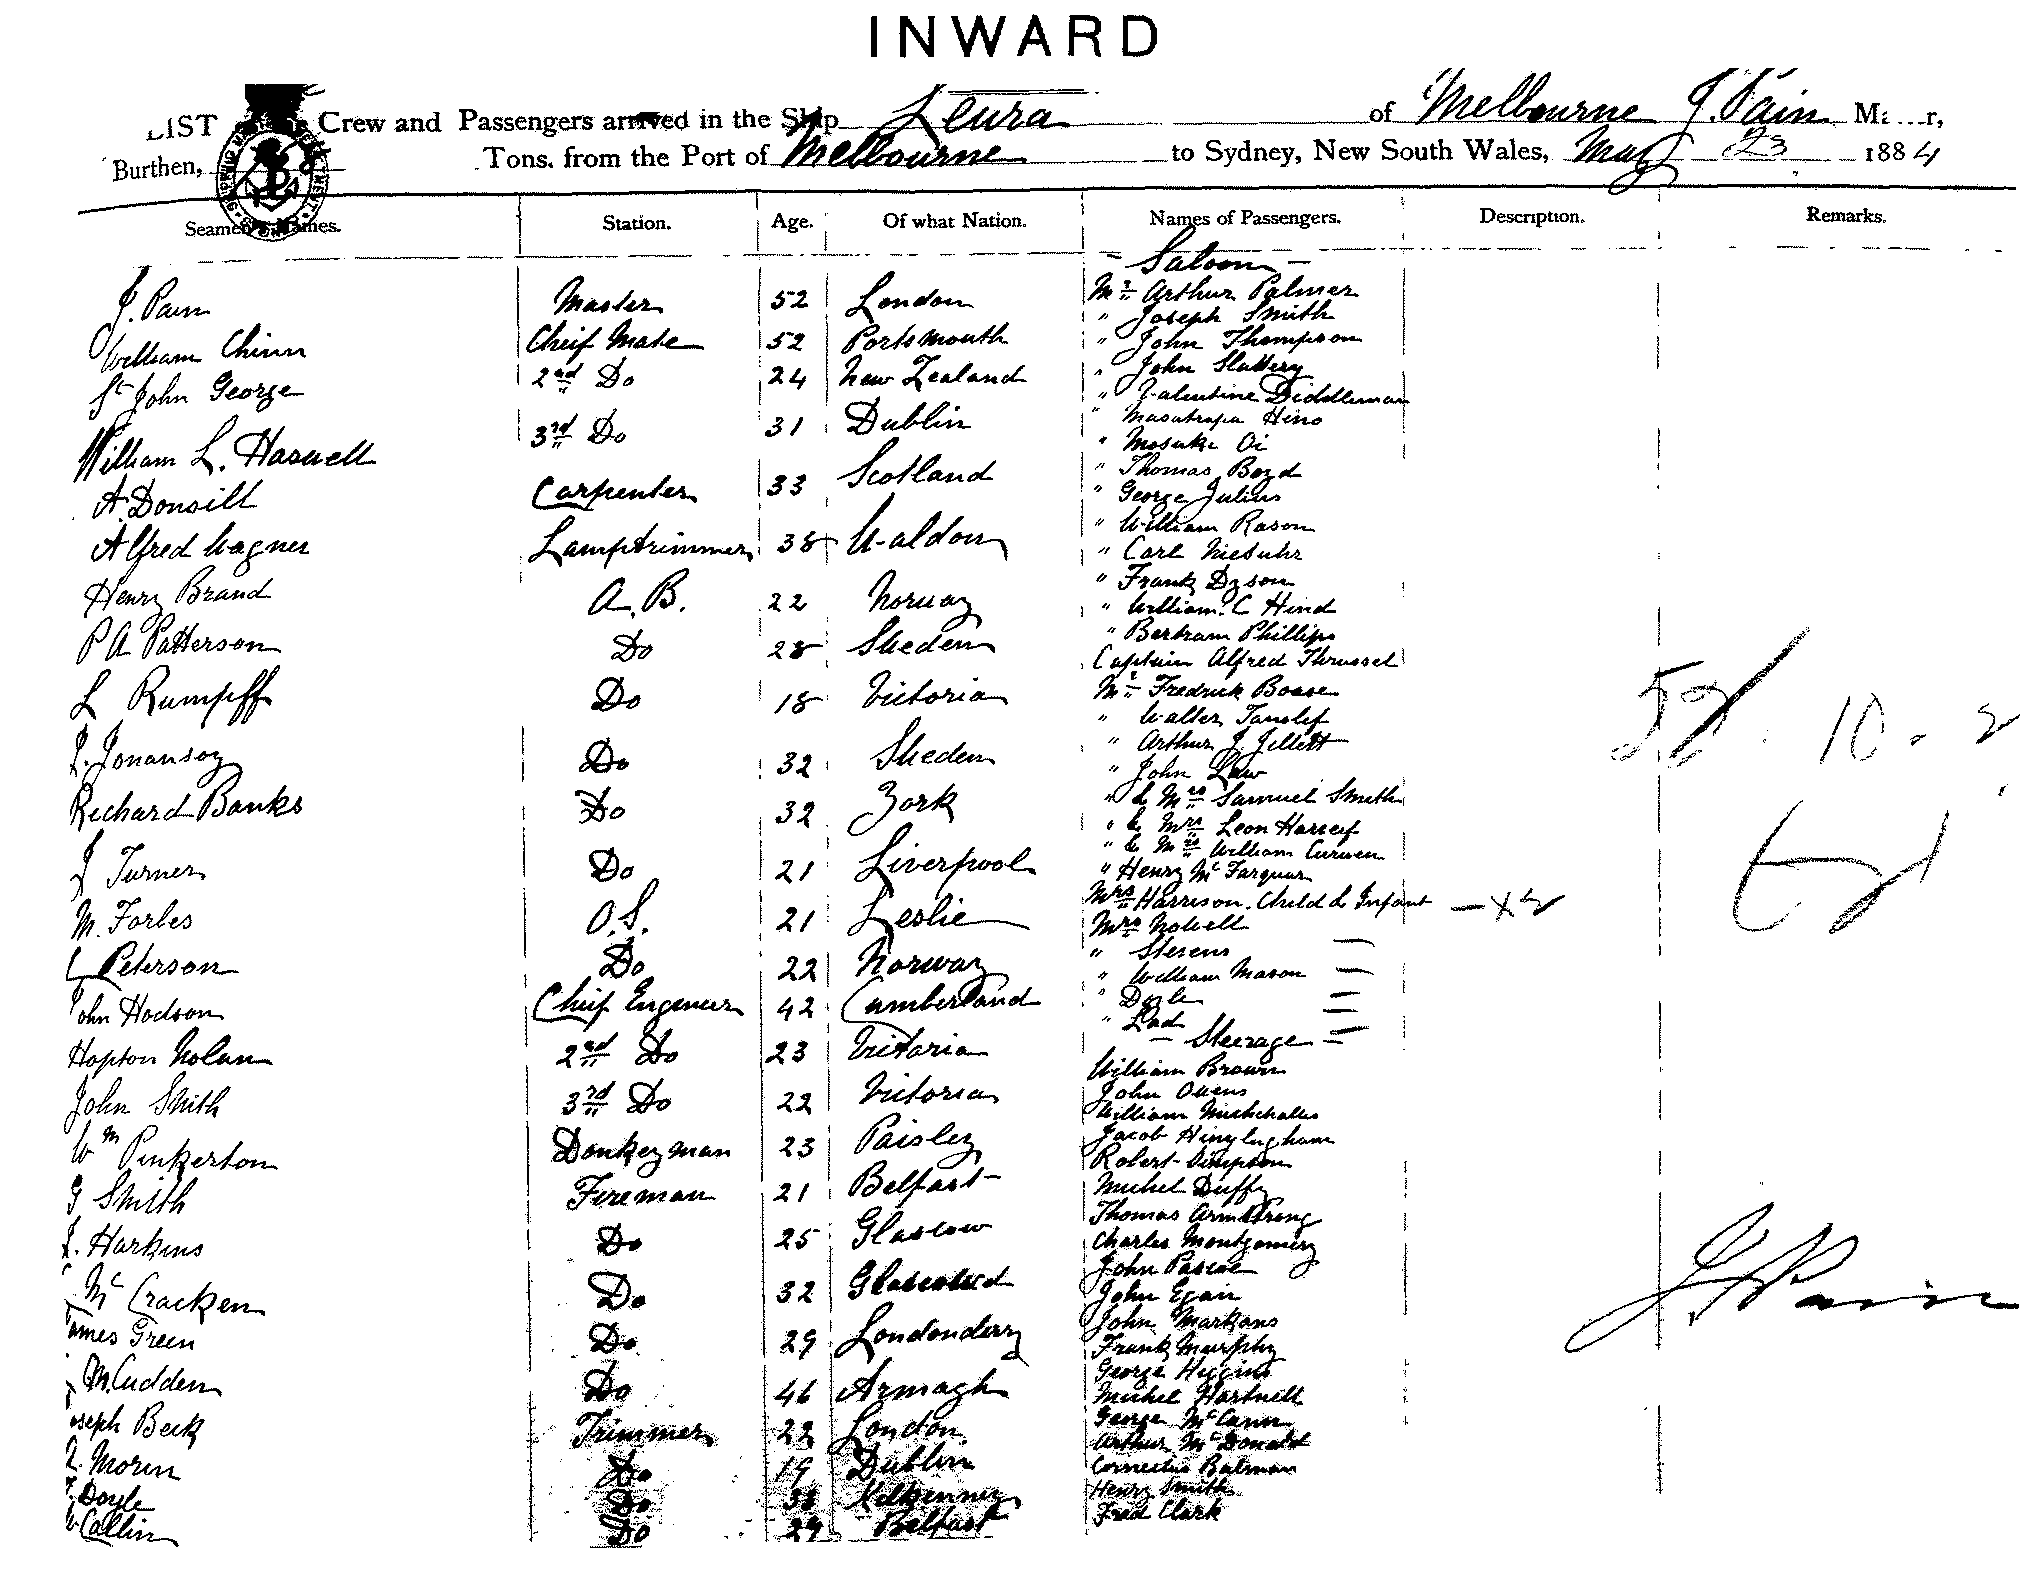 INWARD
LIST Crew and Passengers arrived in the Ship Leura of Melbourne J. Pain
Burthen, Tons. from the Port of Melbourne to Sydney, New South Wales, May 23 1884
Seamen's Names. Station. Age. Of what Nation. Names of Passengers. Description. Remarks.
J. Pain Master 52 London
William Chinn Cheif Mate 52 Portsmouth
St John George 2nd Do 24 New Zealand
William L. Haswell 3rd Do 31 Dublin
A. Carpenter 33 Scotland
Alfred Wagner Lamptrimmer 38
Henry Brand A. B. 22 Norway
P A Patterson Do 28 Sweden
L Rumpff Do 18 Victoria
Do 32 Sweden
Richard Banks Do 32 York
J Turner Do 21 Liverpool
M. Forbes O.S. 21 Leslie
Peterson Do 22 Norway
John Hodson Cheif Engineer 42 Cumberland
Hopton Nolan 2nd Do 23 Victoria
John Smith 3rd Do 22 Victoria
Wm Pinkerton Donkeyman 23 Paisley
G Smith Fireman 21 Belfast
J. Harkins Do 25 Glascow
McCracken Do 32
James Green Do 29 Londonderry
McCudden Do 46 Armagh
Joseph Beck Trimmer 22 London
Moren Do 19 Dublin
Doyle Do
Callin Do 29 Belfast
- Saloon -
Mr Arthur Palmer
" Joseph Smith
" John Thompson
" John Slattery
" Valentine Diddleman
" Hino
" Mosuke Oi
" Thomas Boyd
" George Julius
" William Rason
" Carl Niebuhr
" Frank Dyson
" William. C Hind
" Bertram Phillips
Captain Alfred Thrussel
Mr Fredrick Boase
" Walter
" Arthur J. Jillett
" John Law
" & Mrs Samuel Smith
" & Mrs Leon
" & Mrs William Curwen
" Henry McFarquar
Mrs Harrison. Child & Infant
Mrs Nowell
" Stevens
" William Mason
" Doyle
" Lad
- Steerage -
William Brown
John Owens
William
Jacob
Robert Simpson
Michel Duffy
Thomas Armstrong
Charles Montgomery
John Pascoe
John Egan
John
Frank Murphy
George Higgins
Michel Hartnett
George
Arthur McDonald
Cornelius
Henry Smith
Fred Clark
J. Pain